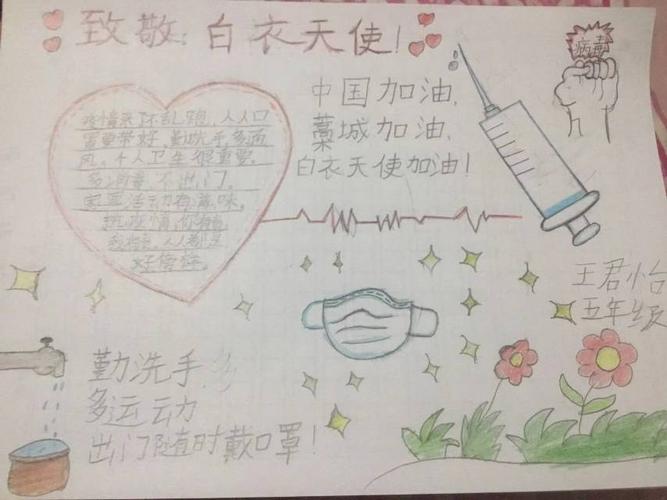 致敬:白衣天使!
病毒
中国加油,
藁城加油,
白衣天使加油!
疫情来了不乱跑,人人口
罩要带好,勤洗手,多通
风,个人卫生很重要。
多消毒,不出门。
家里活动有滋味。
抗疫情,你有责
我有责,人人都是
好榜样。
王君怡
五年级
勤洗手多
多运动
出门随时戴口罩!